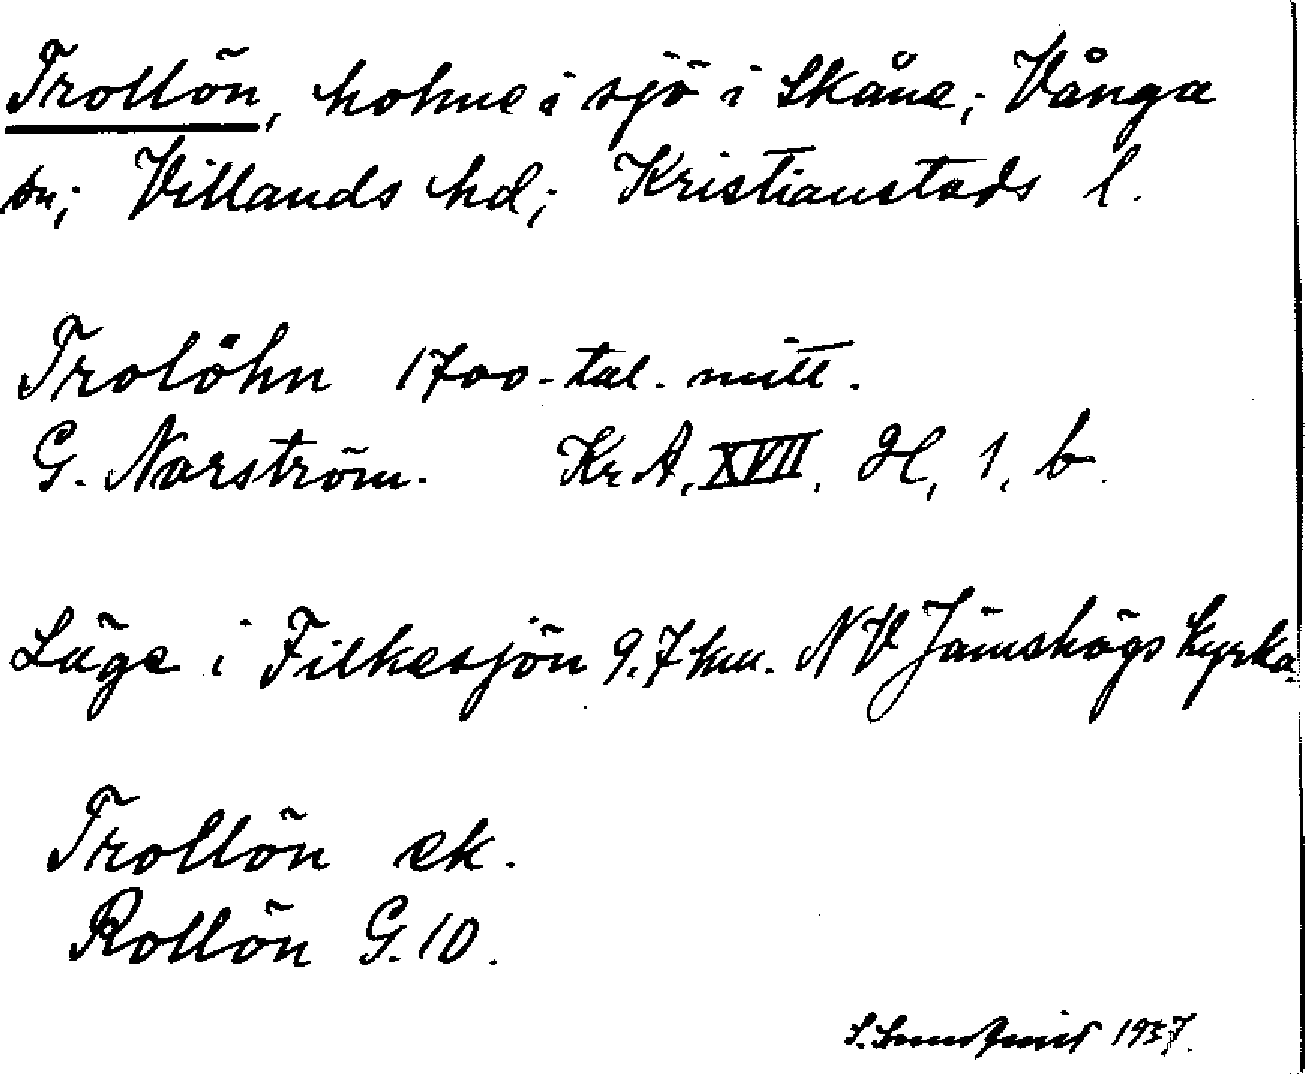 Trollön, holme i sjö i Skåne; Vånga
sn; Villands hd; Kristianstads l.
Trolöhn 1700-tal. mitt.
G. Norström. Kr A, XVII, H, 1, b.
Läge i Filkesjön 9.7 km. NV Jämshögs kyrka.
Trollön ek.
Rollön G. 10.
1937.